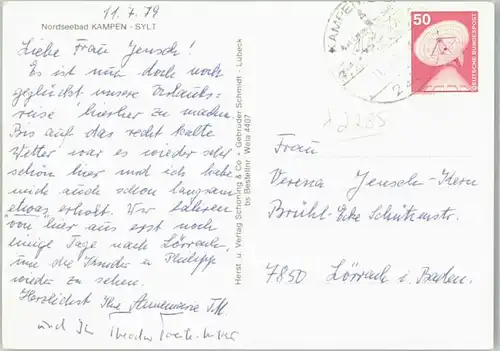 11.7.79
Nordseebad KAMPEN - SYLT
Liebe Frau Jensch!
Es ist uns doch noch
geglückt unsere Urlaubs-
reise hierher zu machen.
Bis auf das recht kalte
Wetter war es wieder sehr
schön hier und ich habe
mich auch schon langsam
etwas erholt. Wir fahren
von hier aus erst noch
einige Tage nach Lörrach,
um die Kinder u Philipp
wieder zu sehen.
Herzlichst Ihre Annemarie T.M.
und Ihr Theodor
Herst. u. Verlag Schöning & Co + Gebrüder Schmidt · Lübeck
bs Bestellnr. Wela 4407
KAMPEN
50
DEUTSCHE BUNDESPOST
Frau
Verena Jensch-Kern
Brühl-Ecke Schützenstr.
7850 Lörrach i. Baden.